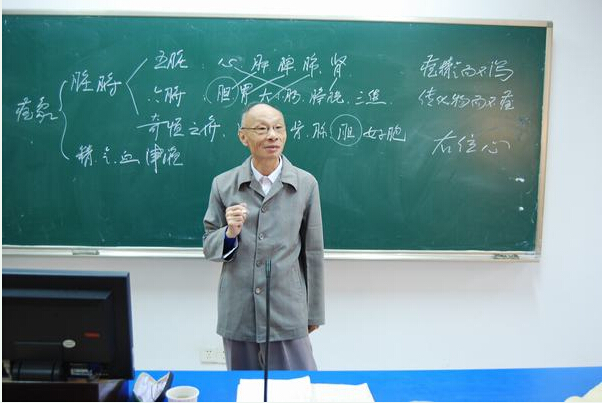 五脏 心 肝 脾 肺 肾 藏精而不泻
脏腑
六腑 胆 胃 大小肠 膀胱 三焦 传化物而不藏
藏象
奇恒之府 骨 脉 胆 女子胞 右位心
精 气 血 津液